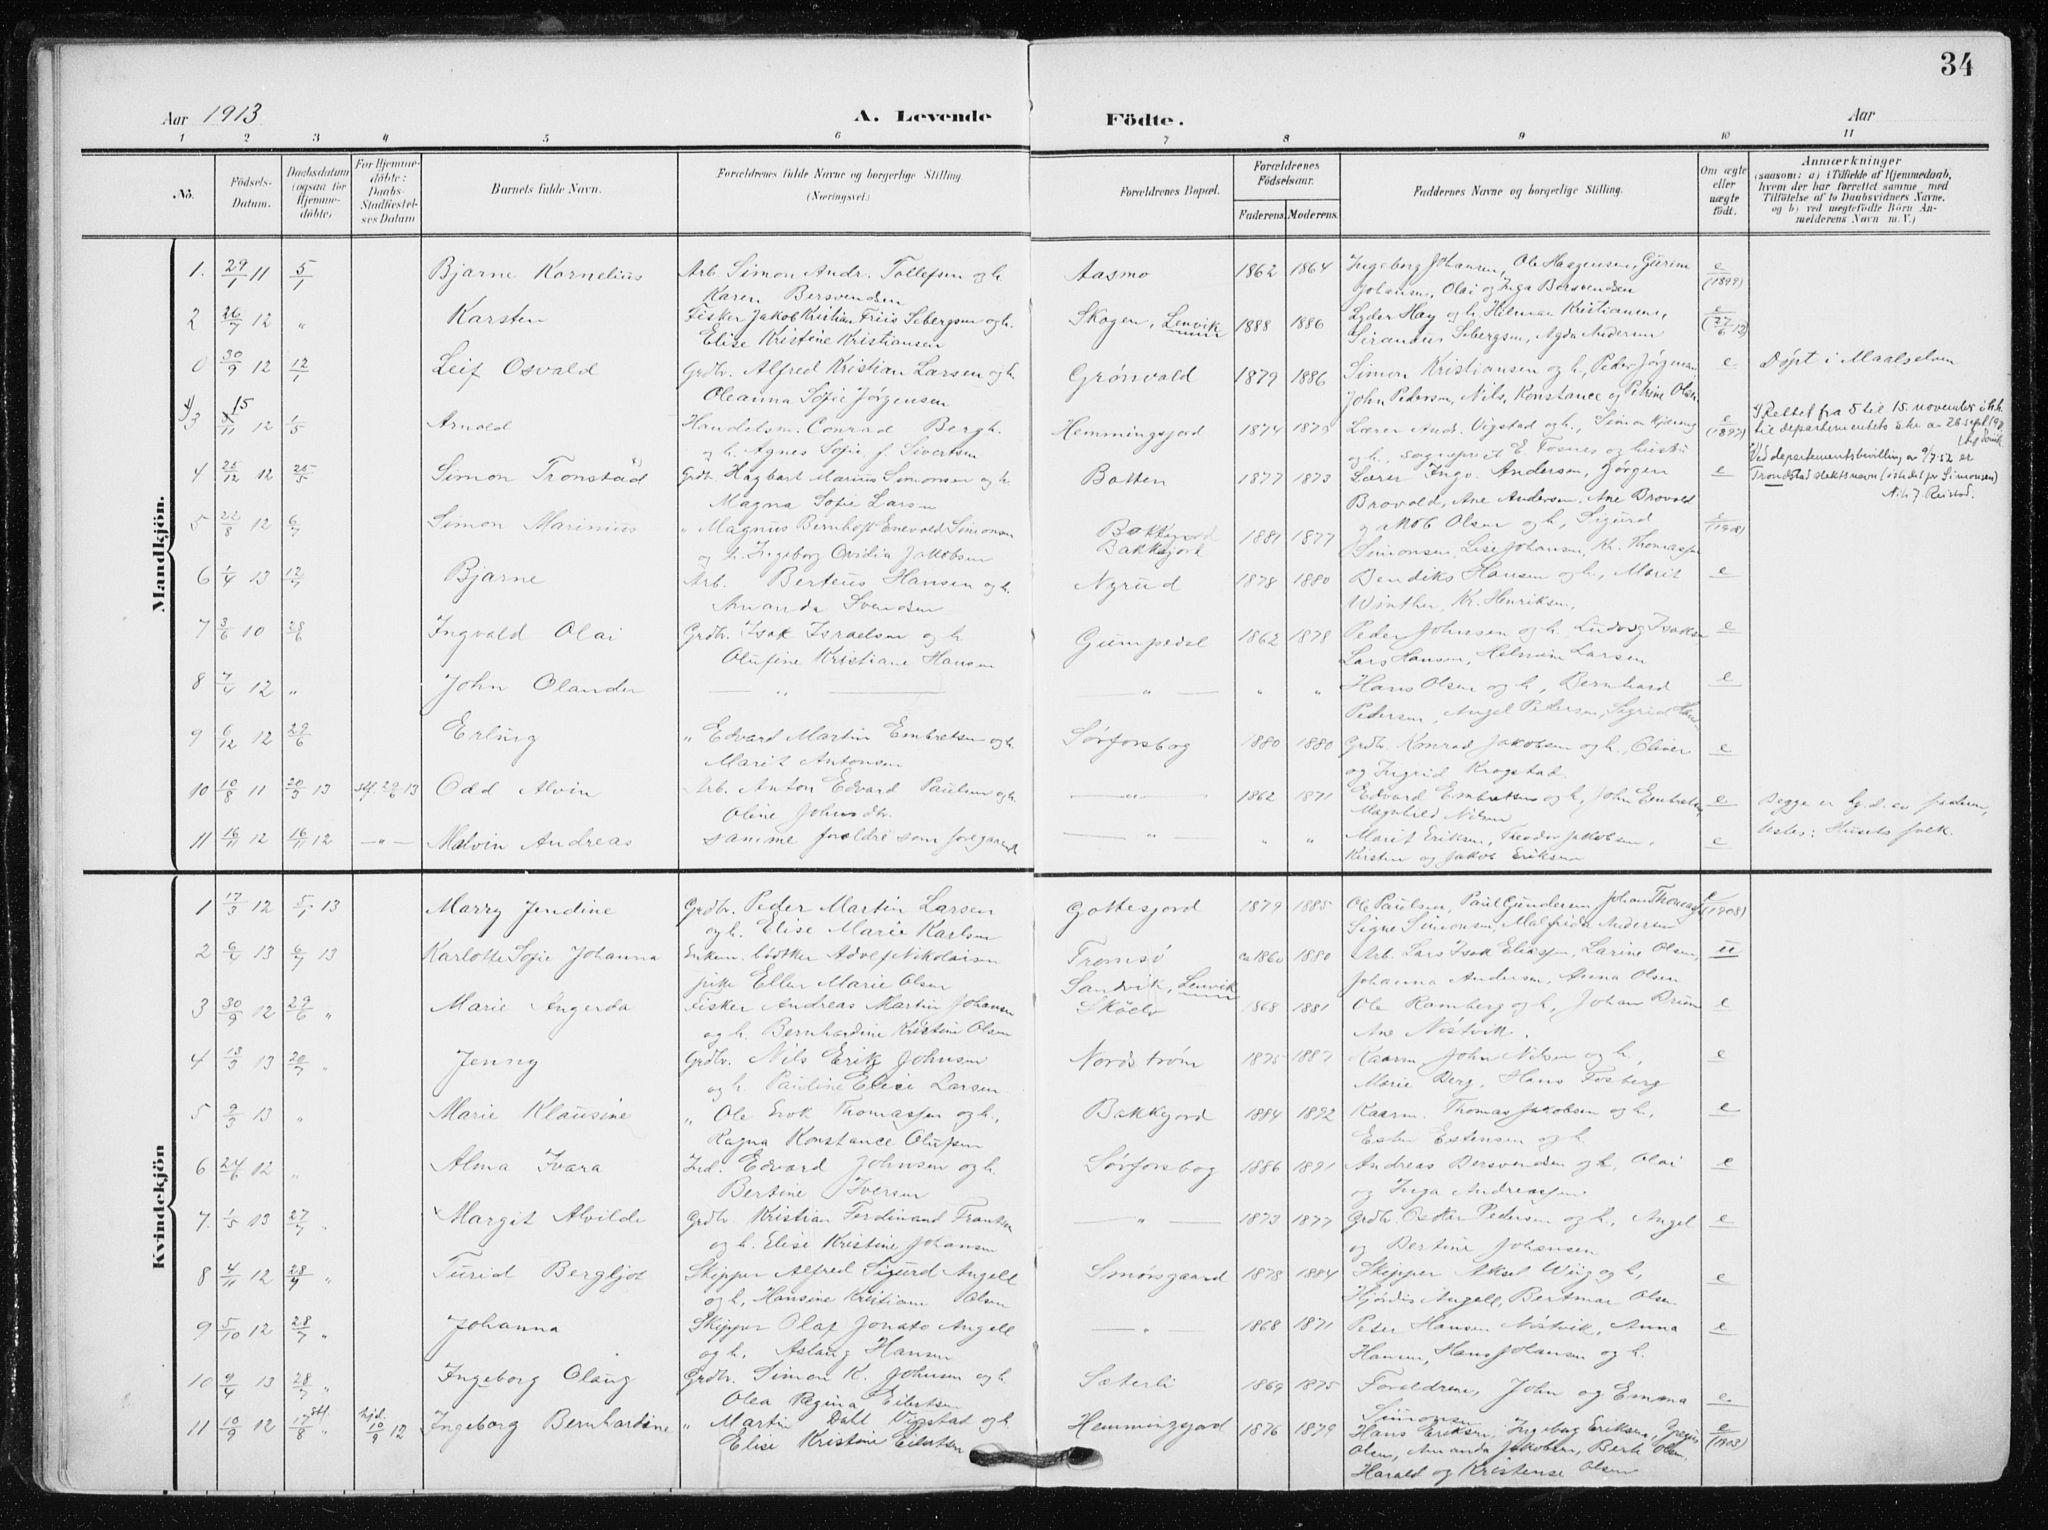 34
Aar 1913
A. Levende
Födte.
Aar
1 2 3 4 5 6 7 8 9 10 11
No.
Födsels-Datum.
Daabsdatum (ogsaa for Hjemmedöbte)
For Hjemmedöbte: Daabs-Stadfæstelses Datum
Barnets fulde Navn.
Forældrenes fulde Navne og borgerlige Stilling. (Næringsvei.)
Forældrenes Bopæl.
Forældrenes Födselsaar.
Faderens. Moderens.
Faddernes Navne og borgerlige Stilling.
Om ægte eller uægte födt.
Anmærkninger
(saasom: a) i Tilfælde af Hjemmedaab, hvem der har forrettet samme med Tilföielse af to Daabsvidners Navne. og b) ved uægtefödte Börn Anmelderens Navn m. V.)
Mandkjön.
1. 29/1 11 5/1 Bjarne Kornelius Arb. Simon Andr. Tollefsen og h. Aasmo 1862 1864 Ingeborg Johansen, Ole Hagensen, Gurine e
Karen Bersvendsen Johansen, Olai og Inga Bersvendsen (1899)
2 26/7 12 " Karsten Fisker Jakob Kristian Friis Sebergsen og h. Skogen, Lenvik 1888 1886 Lyder Hay og h, Hilmar Kristiansen, e
Elise Kristine Kristiansen Sebergsen, Agda Andersen (27/6 12)
0 30/9 12 12/1 Leif Osvald Grdbr. Alfred Kristian Larsen og h. Grönvold 1879 1886 Simon Kristiansen og h, Peder Jörgensen e Döpt i Maalselven
Oleanna Sofie Jörgensen John Pedersen, Nils, Konstance og Petrine Olsen
3 15/11 12 1/5 Arnold Handelsm. Conrad Bergh. Hemmingsjord 1874 1879 Lærer And. Vigstad og h, Simon e (1897) Rettet fra 5 til 15. november
og h. Agnes Sofie f. Sivertsen og h., sogneprest E. Fosnes og hustru til departementets skr. av 26. sept.
4 25/12 12 25/5 Simon Tronstad Grdbr. Hagbart Marius Simonsen og h. Botten 1877 1873 Lærer Ingv. Andersen, Jörgen e Ved departementsbevilling av 9/7.52 er
Magna Sofie Larsen Brovold, Ane Andersen, Ane Brovold Trondstad slektsnavn (istedet for Simonsen)
5 22/8 12 6/7 Simon Marinius " Magnus Bernhoft Enevold Simonsen Bakkejord 1881 1877 Jakob Olsen og h, Sigurd (1908)
og h. Ingeborg Ovidia Jakobsen Bakkejord Simonsen, Lise Johansen, Kr. Thomassen
6 1/4 13 12/7 Bjarne Arb. Berteus Hansen og h. Nyrud 1878 1880 Bendiks Hansen og h, Marit e
Amanda Svendsen Winther, Kr. Henriksen,
7 3/6 10 28/6 Ingvald Olai Grdbr. Isak Israelsen og h. Gumpedal 1862 1878 Peder Johnsen og h, Ludvig Isaksen e
Olufine Kristiane Hansen Lars Hansen, Larsen
8 7/4 12 " John Olander — " — — " — " " Hans Olsen og h, Bernhard e
Pedersen, Angel Pedersen, Sigrid
9 6/12 12 29/6 Erling " Edvard Martin Embretsen og h. Sörforsbog 1880 1880 Grdbr. Konrad Jakobsen og h, Oliver e
Marit Antonsen og Ingrid Krogstad.
10 10/8 11 20/3 13 stf. 29/6 13 Odd Alvin Arb. Anton Edvard Paulsen og h. — " — 1862 1871 Edvard Embretsen og h, John Embretsen, e Begge er hj.d. av faderen,
Oline Johnsdtr. Magnhild Nilsen
11 16/11 12 16/11 12 — " — Malvin Andreas samme foreldre som foregaaende — " — " " Marit Eriksen, Teodor Jakobsen, e Husets folk.
Kirsten og Jakob Eriksen
Kvindekjön
1 17/3 12 5/1 13 Marry Jendine Grdbr. Peder Martin Larsen Gottesjord 1879 1885 Ole Paulsen, Paul Gundersen, Johan Thomas e (1908)
og h. Elise Marie Karlsen Signe Simonsen, Malfrida Andersen
2 6/4 13 6/7 13 Karlotte Sofie Johanna Enkem. bödker Adolf Nikolaisen Tromsö ca 1860 1880 Arb. Lars Isak Eliassen, Larine Olsen, u
pike Ellen Marie Olsen Sandvik, Lenvik Johanna Andersen, Anna Olsen
3 30/9 12 29/6 " Marie Angerda Fisker Andreas Martin Johansen Sköelv 1868 1881 Ole Ramberg og h, Johan Bruun e
og h. Bernhardine Kristine Olsen Ane Nöstvik.
4 13/3 13 20/7 " Jenny Grdbr. Nils Erik Johnsen Nordström 1875 1887 Kaarm. John Nilsen og h, e
og h. Pauline Elise Larsen Marie Berg, Hans Fosberg
5 9/3 13 " Marie Klausine " Ole Erok Thomassen og h., Bakkejord 1884 1892 Kaarm. Thomas Jakobsen og h, e
Ragna Konstance Olufsen Ester Estensen og h.
6 24/6 12 " Alma Ivara Ind. Edvard Johnsen og h. Sörforsbog 1886 1891 Andreas Bersvendsen og h, Olai e
Bertine Iversen og Inga Andreassen
7. 1/5 13 27/7 " Margit Alvilde Grdbr. Kristian Ferdinand Frantsen — " — 1873 1877 Grdbr. Oskar Pedersen og h, Angel e
og h. Elise Kristine Johansen og Bertine Johansen
8 4/11 12 28/7 " Turid Bergljot Skipper Alfred Sigurd Angell Smörsgaard 1878 1884 Skipper Aksel Wiig og h, e
og h, Hansine Kristiane Olsen Hjördis Angell, Bertmar Olsen
9 5/10 12 28/7 " Johanna Skipper Olaf Jonato Angell — " — 1868 1871 Peter Hansen Nöstvik, Anna e
og h. Aslaug Hansen Hansen, Hans Johansen og h.
10 9/4 13 28/7 " Ingeborg Olaug Grdbr. Simon K. Johnsen og h. Sæterli 1869 1875 Foreldrene, John og Emma e
Olea Regina Eilertsen Simonsen
11 10/9 12 17/8 stf. " hjd. 10/9 12 Ingeborg Bernhardine " Martin Dahl Vigstad og h Hemmingsjord 1876 1879 Hans Eriksen, Ingeborg Eriksen, e (1903)
Elise Kristine Eilertsen Olsen, Amanda Jakobsen, Berte Olsen,
Harald og Kristense Olsen